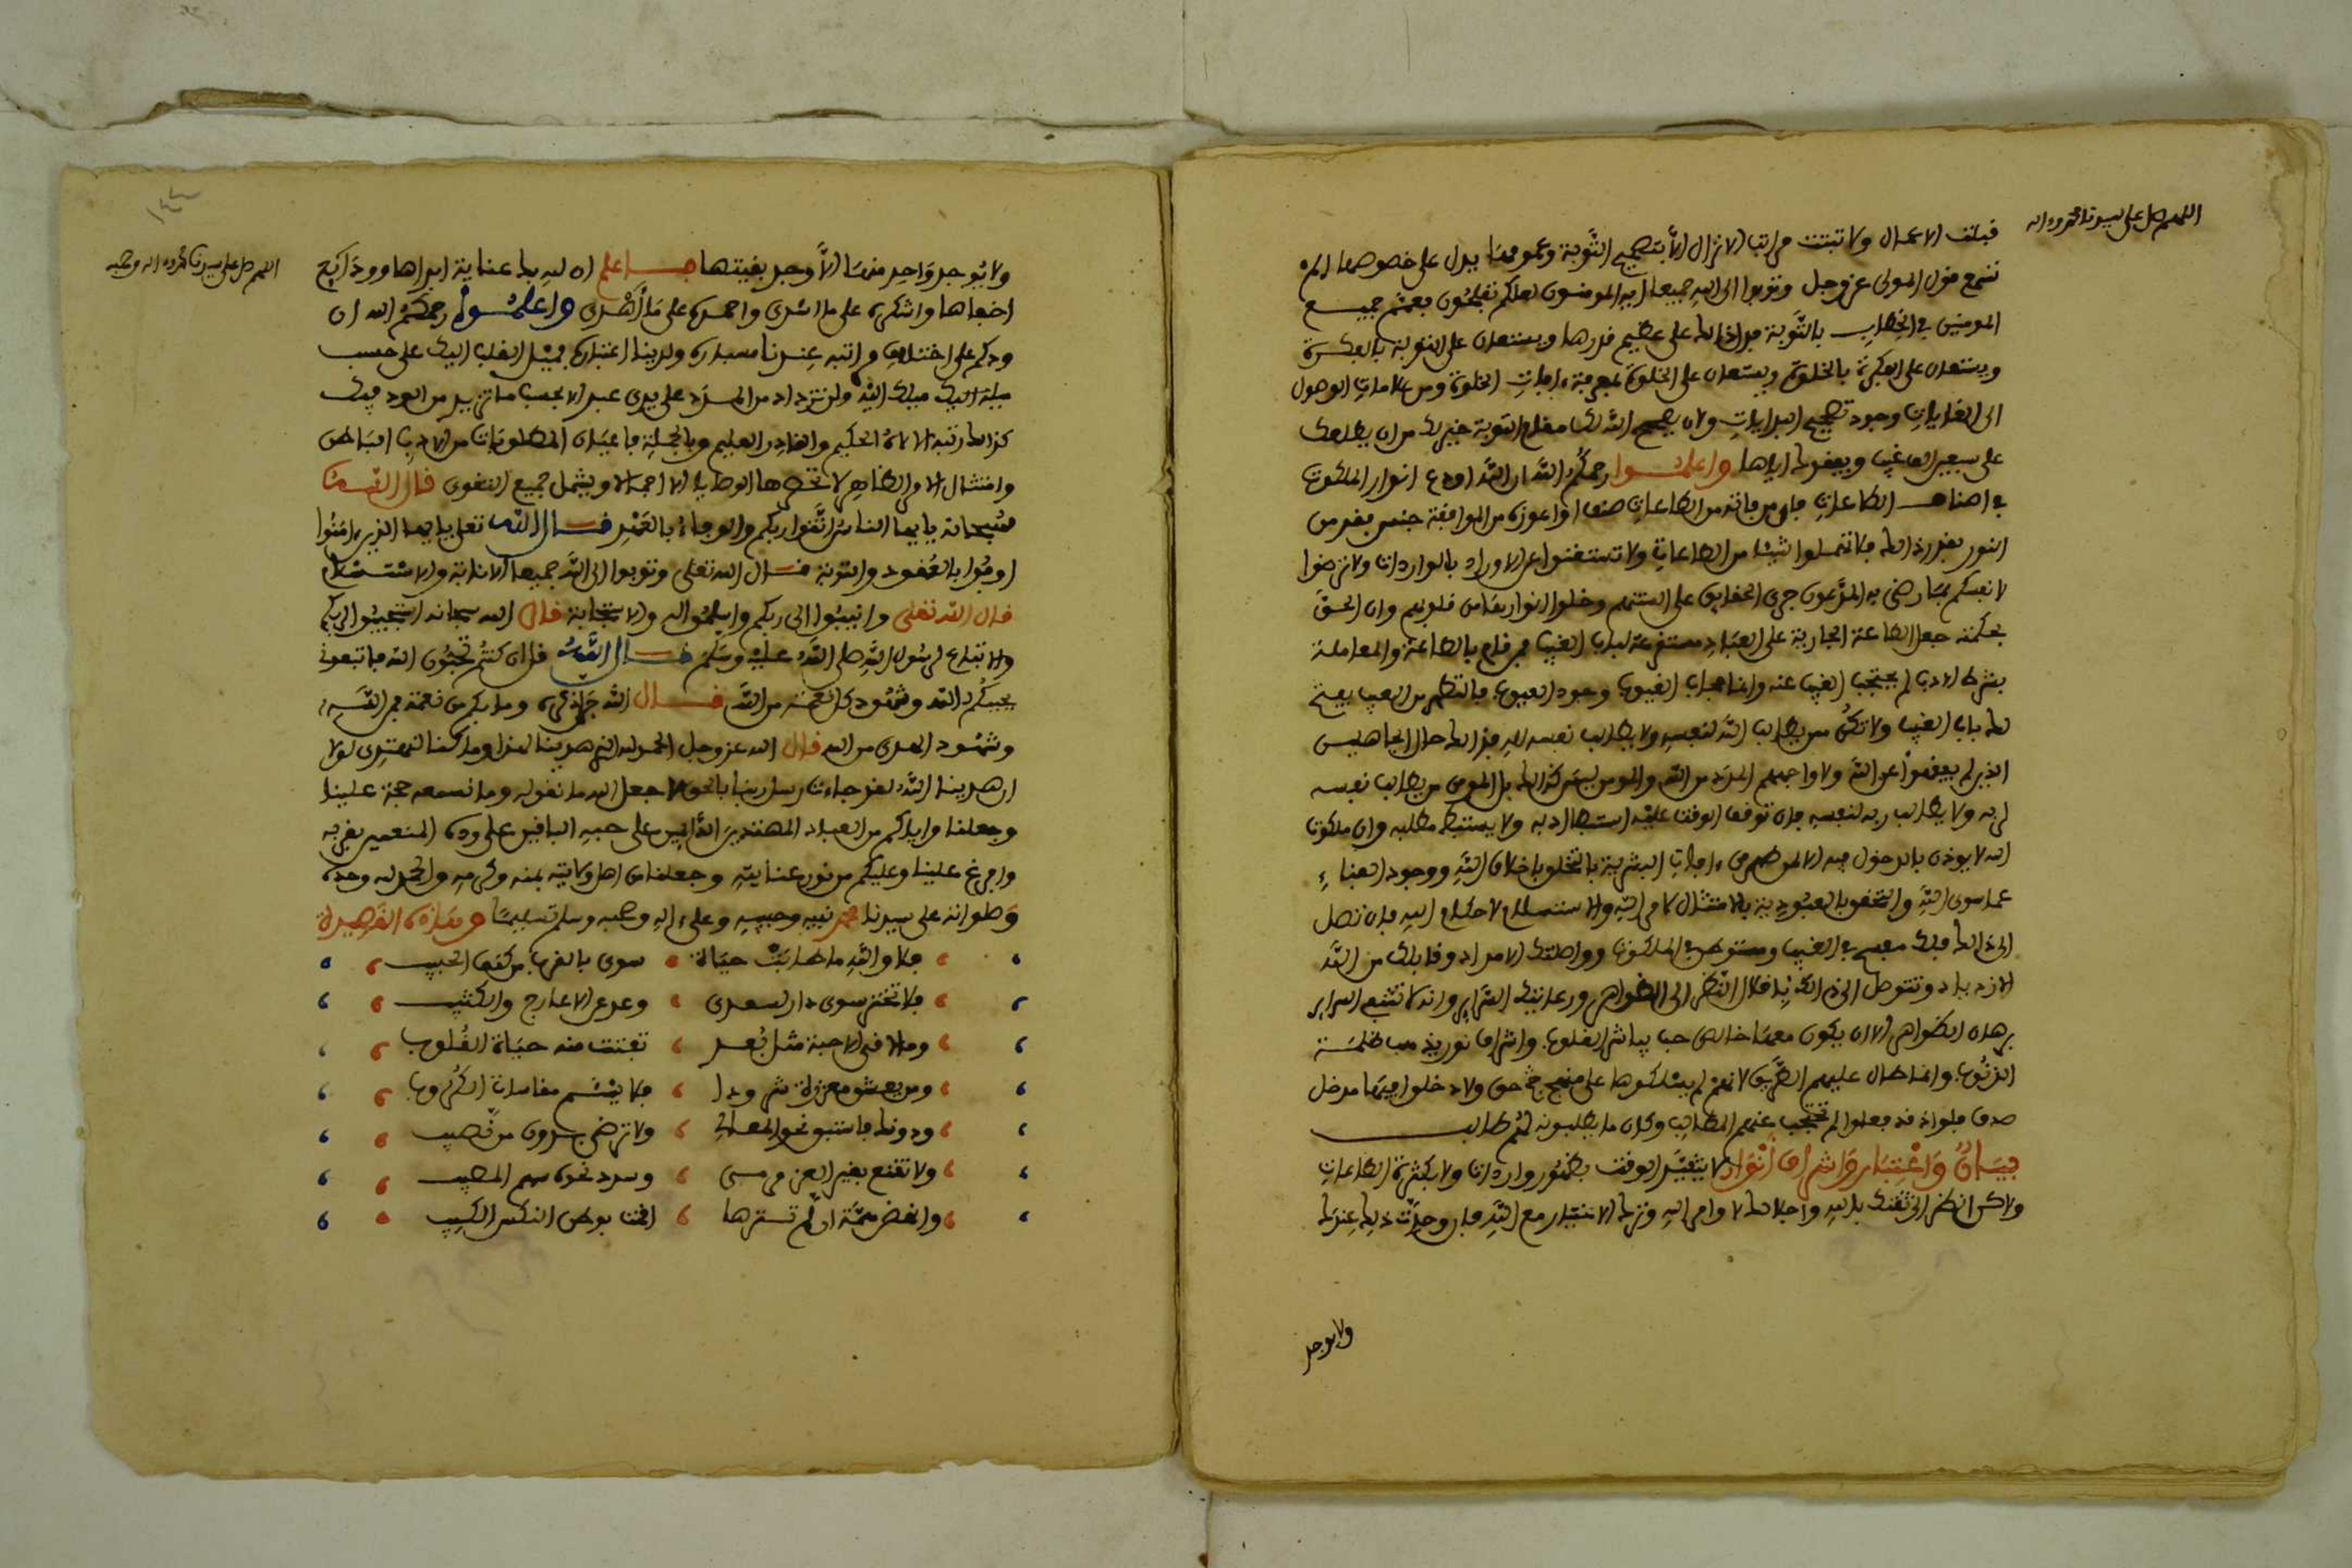 اللهم صل على سيدنا محمد وءاله
قبلت الاعمال ولا تبتت مراتب الانزال الا بتصحيح التوبة وعمومها يدل على خصوصها الم
تسمع قول المولى عز وجل وتوبوا الى الله جميعا ايه المومنون لعلكم تفلحون فعمم جميع
المومنين في الخطاب بالتوبة فدل ذالك على عظيم قدرها ويستعان على التوبة بالفكرة
ويستعان على الفكرة بالخلوة ويستعان على الخلوة بمعرفة ءافات الخلوة ومن علامات الوصول
الى الغايات وجود تصحيح البدايات ولان يصحح الله لك مقام التوبة خير لك من ان يطلعك
على سبعين الف غيب ويفقدك اياها واعلموا رحمكم الله ان الله اودع انوار الملكوت
في اصناف الطاعات فاي من فاته من الطاعات صنف او اعوزه من الموافقة جنس فقد من
النور بقدر ذالك فلا تهملوا شيئا من الطاعات ولا تستغنوا عن الاوراد بالواردات ولا ترضوا
لانفسكم بما رضي به المدعون جري الحقايق على السنتهم وخلو انوارها من قلوبهم وان الحق
بحكمته جعل الطاعة الجارية على العباد مستقرعة لباب الغيب فمن قام بالطاعة والمعاملة
بشرط الادب لم يحتجب الغيب عنه وانما حجاب الغيوب وجود العيوب فالتطهر من العيب يفتح
لك باب الغيب ولا تكن ممن يطالب الله لنفسه ولا يطالب نفسه لله فذالك حال الجاهلين
الذين لم يفقهوا عن الله ولا واجههم المدد من الله والمومن ليس كذالك بل المومن من يطالب نفسه
لربه ولا يطالب ربه لنفسه فان توقف الوقت عليه استبطا ادبه ولا يستبطئ مطلبه وان ملكوت
الله لا يوذن بالدخول فيه الا لمن طهر من ءافات البشرية بالتخلق باخلاق الله ووجود الفناء
عما سوى الله والتحقق بالعبودية بالامتثال لامر الله والاستسلام لاحكام الله فان تصل
الى ذالك فلك مفسح في الغيب ومستوطن في الملكوت وواصلتك الامداد وقابلك من الله
الازدياد وتتوصل الى ذالك باقلال النظر الى الظواهر ورعايتك السراير وانه لا تتبع السراير
برهان الظواهر الا ان يكون معها خالص حب يباشر القلوب واشراق نور يذهب ظلمة
الذنوب وانما طال عليهم الطريق لانهم لم يسلكوها على منهج حق ولا دخلوا فيها مدخل
صدق فلو اذ قد فعلوا لم تحتجب عنهم المطالب وكان ما يطلبونه لهم طالب
بيان واعتبار واشراق انوار لا يتقيد الوقت بظهور واردات ولا بكثرة الطاعات
ولاكن انظر الى ثقتك بالله واجلالك لاوامر الله وترك الاختيار مع الله فان وجدت ذلك عندك
ولا يوجد
١٤٤
اللهم صل على سيدنا محمد وءاله وصحبه
ولا يوجد واحد منها الا وجد بقيتها فاعلم ان لله بك عناية ابداها وودايع
اخفاها واشكره على ما اسدى واحمده على ما اهدى واعلموا رحمكم الله ان
ودكم على اختلاف مراتبه عندنا مسداره ولدينا اعتباره فميل القلب اليك على حسب
ميله اليك ميلك اليه ولن تزداد من المدد على يدي عبد الا بحسب ما تزيد من الود فيك
كذالك رتبه الالاه الحكيم والقادر العليم وبالجملة فاعيان المطلوبات من الادب الباطن
وامتثال الامر الظاهر لا تحصرها الوصايا الا اجمالا ويشمل جميع التقوى قال الله
سبحانه يايها الناس اتقوا ربكم والوفاء بالعهد قال الله تعلى يايها الذين ءامنوا
اوفوا بالعقود والتوبة قال الله تعلى وتوبوا الى الله جميعا الانابة والاستسلام
قال الله تعلى وانيبوا الى ربكم واسلموا له والاستجابة قال الله سبحانه استجيبوا لربكم
والاتباع لرسول الله صلى الله عليه وسلم قال الله قل ان كنتم تحبون الله فاتبعوني
يحببكم الله وشهود كل نعمة من الله قال الله جل ذكره وما بكم من نعمة فمن الله
وشهود الهدى من الله قال الله عز وجل الحمد لله الذي هدينا لهذا وما كنا لنهتدي لولا
ان هدينا الله لقد جاءت رسل ربنا بالحق لا جعل الله ما نقوله وما نسمعه حجة علينا
وجعلنا واياكم من العباد المهتدين الدايمين على حبه الباقين على وده المنعمين بقربه
وافرغ علينا وعليكم من نور عنايته وجعلنا من اهل ولايته بمنه وكرمه والحمد لله وحده
وصلواته على سيدنا محمد نبيه وحبيبه وعلى ءاله وصحبه وسلم تسليما وهاذه القصيدة
فلا والله ما طابت حياة سوى بالقرب من كنف الحبيب
فلا تختر سوى دار لسعدى وعد عن الاعارج والكثيب
وما لافى الاحبة مثل بعد تفتت منه حياة القلوب
ومن يعشق معززة شرودا فلا يسئم مقاسات الكروب
ودونك فاستبق نحو المعالي ولا ترضى بدون من نصيب
ولا تقنع بغير العز مرسى وسدد نحوه سهم المصيب
وانهض همة ان لم تسترها اقمت بوطن النكس الكسيب